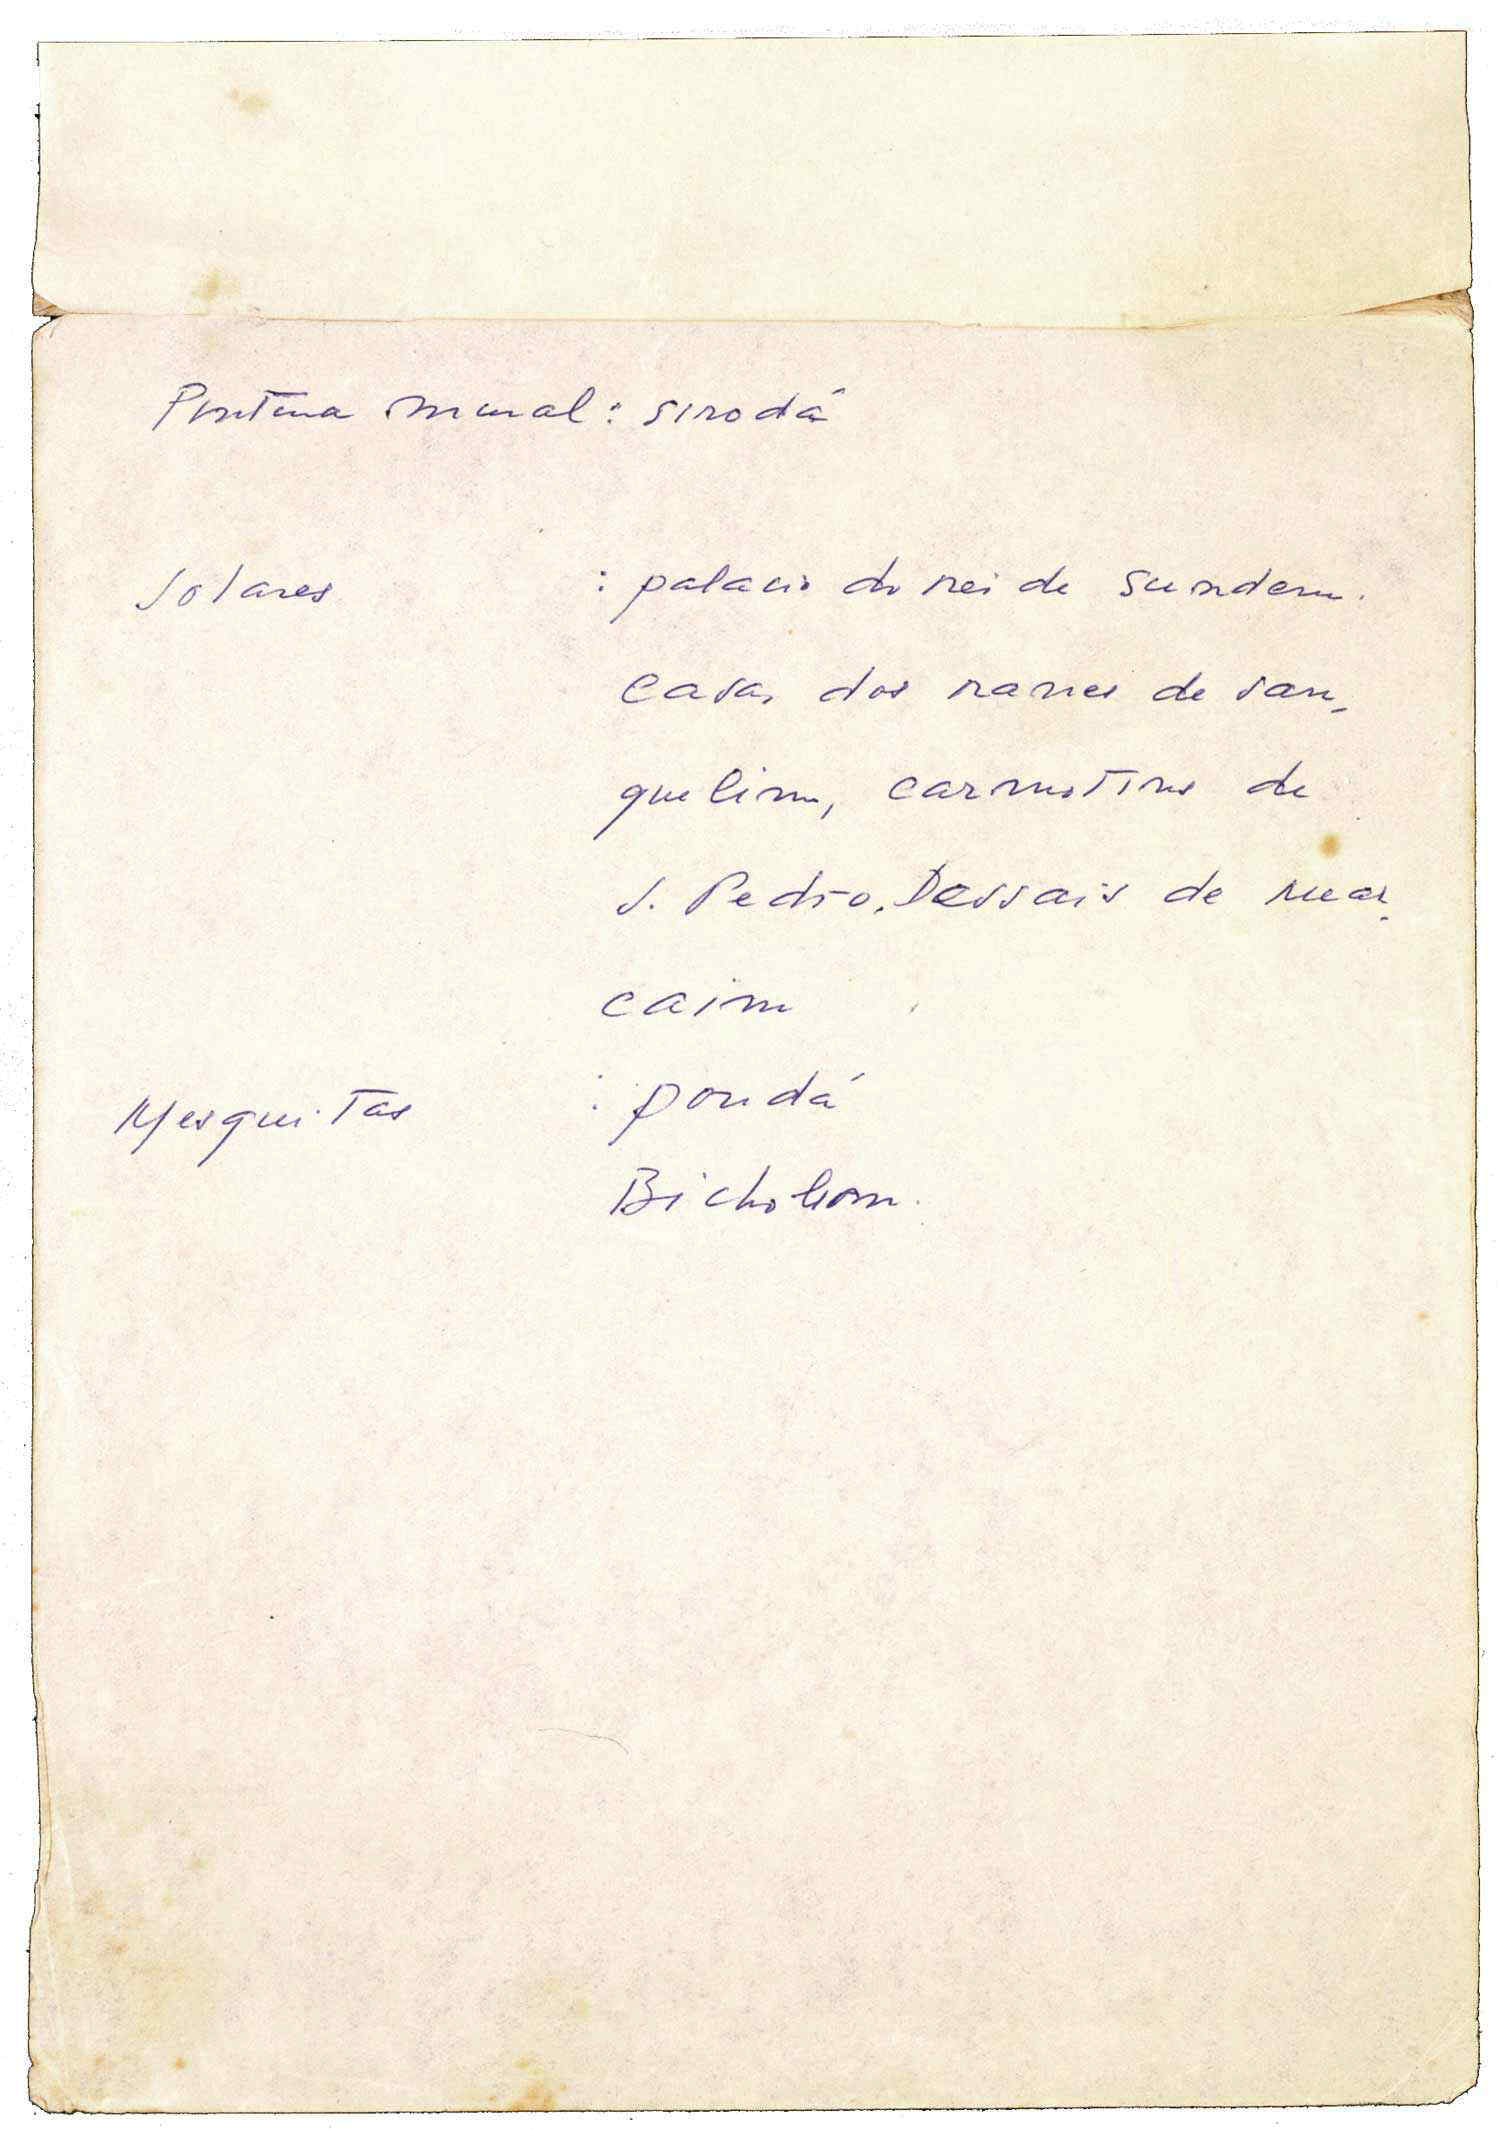 Pintura mural: Sirodá
Solares : palacio do rei de Sundem.
Casas dos ranes de San-
quelim, carmotins de
S. Pedro, Dessais de Mar-
caim
Mesquitas : pondá
Bicholim.